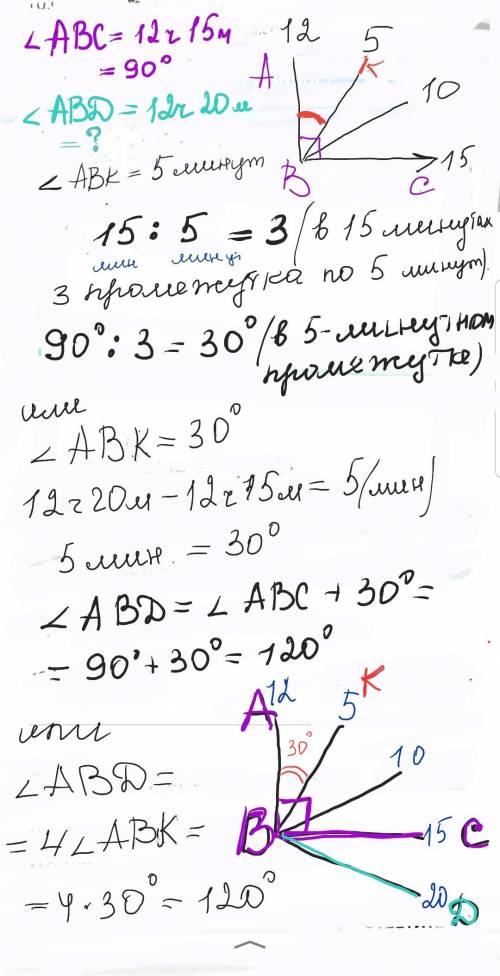 ∠ABC = 12ч 15м
= 90°
∠ABD = 12ч 20м
= ?
∠ABK = 5 минут
12
5
A
K
10
B
C
15
15 : 5 = 3 (в 15 минутах
мин минут
3 промежутка по 5 минут).
90° : 3 = 30° (в 5-минутном
промежутке)
или
∠ABK = 30°
12ч 20м - 12ч 15м = 5 (мин)
5 мин. = 30°
∠ABD = ∠ABC + 30° =
= 90° + 30° = 120°
или
∠ABD =
= 4∠ABK =
= 4·30° = 120°
A
12
5
K
30°
10
B
15
C
20
D